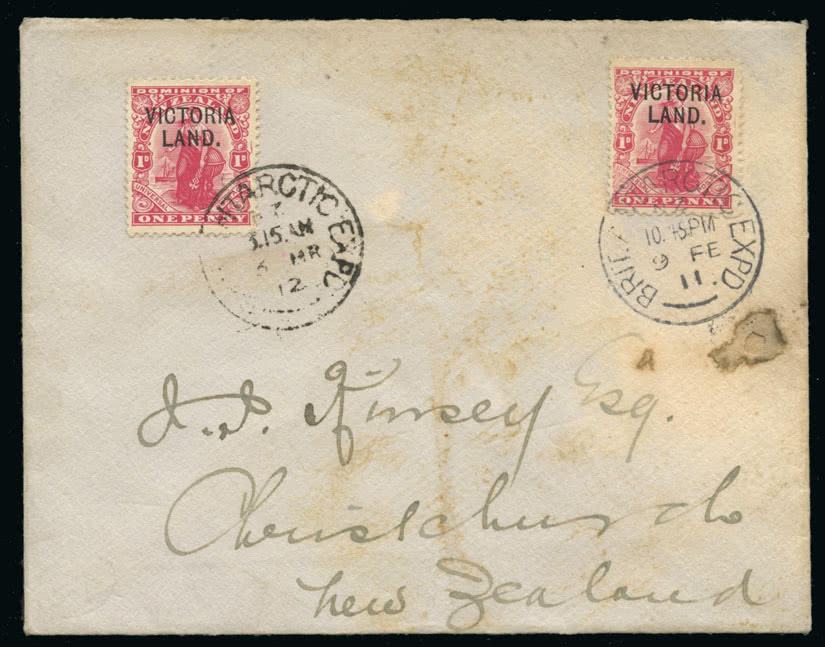 DOMINION OF
NEW ZEALAND
VICTORIA
LAND.
1D 1D
UNIVERSAL
ONE PENNY
ANTARCTIC EXPD
3.15.AM
MR
12
DOMINION OF
NEW ZEALAND
VICTORIA
LAND.
1D 1D
ONE PENNY
BRIT. ANTARCTIC EXPD
10.45PM
9 FE
11.
J.J. Kinsey Esq.
Christchurch
New Zealand